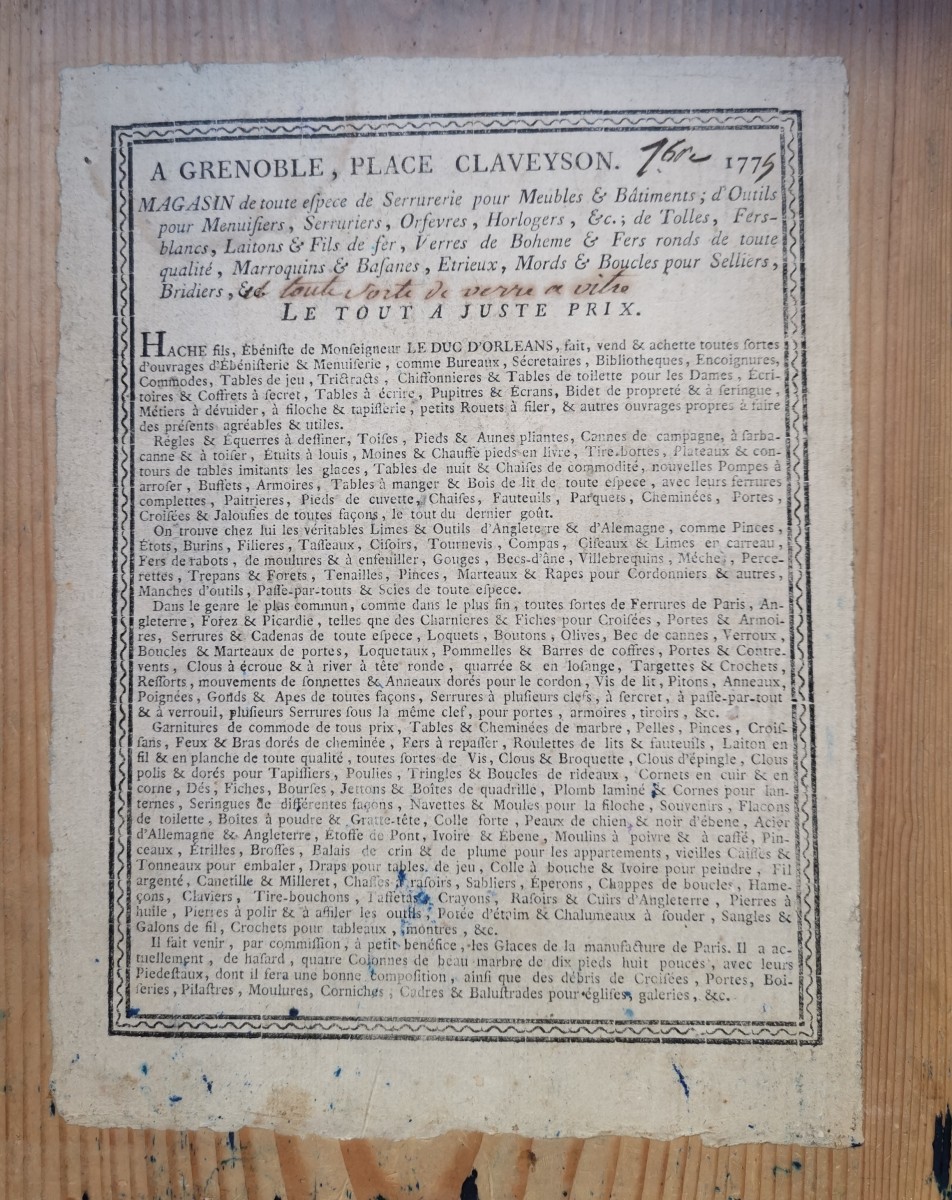 A GRENOBLE, PLACE CLAVEYSON. 7bre 1775
MAGASIN de toute eſpece de Serrurerie pour Meubles & Bâtiments ; d'Outils
pour Menuiſiers, Serruriers, Orfevres, Horlogers, &c. ; de Tolles, Fers-
blancs, Laitons & Fils de fer, Verres de Boheme & Fers ronds de toute
qualité, Marroquins & Baſanes, Etrieux, Mords & Boucles pour Selliers,
Bridiers, &c toute sorte de verre a vitre
LE TOUT A JUSTE PRIX.
HACHE fils, Ébéniſte de Monſeigneur LE DUC D'ORLEANS, fait, vend & achette toutes ſortes
d'ouvrages d'Ébéniſterie & Menuiſerie, comme Bureaux, Sécretaires, Bibliotheques, Encoignures,
Commodes, Tables de jeu, Trictracts, Chiffonnieres & Tables de toilette pour les Dames, Écri-
toires & Coffrets à ſecret, Tables à écrire, Pupitres & Écrans, Bidet de propreté & à ſeringue,
Métiers à dévuider, à filoche & tapiſſerie, petits Rouets à filer, & autres ouvrages propres à faire
des préſents agréables & utiles.
Régles & Équerres à deſſiner, Toiſes, Pieds & Aunes pliantes, Cannes de campagne, à ſarba-
canne & à toiſer, Étuits à louis, Moines & Chauffe pieds en livre, Tire-bottes, Plateaux & con-
tours de tables imitants les glaces, Tables de nuit & Chaiſes de commodité, nouvelles Pompes à
arroſer, Buffets, Armoires, Tables à manger & Bois de lit de toute eſpece, avec leurs ferrures
complettes, Paitrieres, Pieds de cuvette, Chaiſes, Fauteuils, Parquets, Cheminées, Portes,
Croiſées & Jalouſies de toutes façons, le tout du dernier goût.
On trouve chez lui les véritables Limes & Outils d'Angleterre & d'Alemagne, comme Pinces,
Étots, Burins, Filieres, Taſſeaux, Ciſoirs, Tournevis, Compas, Ciſeaux & Limes en carreau,
Fers de rabots, de moulures & à enfeuiller, Gouges, Becs-d'âne, Villebrequins, Méche, Perce-
rettes, Trepans & Forets, Tenailles, Pinces, Marteaux & Rapes pour Cordonniers & autres,
Manches d'outils, Paſſe-par-touts & Scies de toute eſpece.
Dans le genre le plus commun, comme dans le plus fin, toutes ſortes de Ferrures de Paris, An-
gleterre, Forez & Picardie, telles qne des Charnieres & Fiches pour Croiſées, Portes & Armoi-
res, Serrures & Cadenas de toute eſpece, Loquets, Boutons, Olives, Bec de cannes, Verroux,
Boucles & Marteaux de portes, Loquetaux, Pommelles & Barres de coffres, Portes & Contre-
vents, Clous à écroue & à river à tête ronde, quarrée & en loſange, Targettes & Crochets,
Reſſorts, mouvements de ſonnettes & Anneaux dorés pour le cordon, Vis de lit, Pitons, Anneaux,
Poignées, Gonds & Apes de toutes façons, Serrures à pluſieurs clefs, à ſercret, à paſſe-par-tout
& à verrouil, pluſieurs Serrures ſous la même clef, pour portes, armoires, tiroirs, &c.
Garnitures de commode de tous prix, Tables & Cheminées de marbre, Pelles, Pinces, Croiſ-
ſans, Feux & Bras dorés de cheminée, Fers à repaſſer, Roulettes de lits & fauteuils, Laiton en
fil & en planche de toute qualité, toutes ſortes de Vis, Clous & Broquette, Clous d'épingle, Clous
polis & dorés pour Tapiſſiers, Poulies, Tringles & Boucles de rideaux, Cornets en cuir & en
corne, Dés, Fiches, Bourſes, Jettons & Boîtes de quadrille, Plomb laminé & Cornes pour lan-
ternes, Seringues de différentes façons, Navettes & Moules pour la filoche, Souvenirs, Flacons
de toilette, Boîtes à poudre & Gratte-tête, Colle forte, Peaux de chien & noir d'ébene, Acier
d'Allemagne & Angleterre, Étoffe de Pont, Ivoire & Ébene, Moulins à poivre & à caffé, Pin-
ceaux, Étrilles, Broſſes, Balais de crin & de plume pour les appartements, vieilles Caiſſes &
Tonneaux pour embaler, Draps pour tables de jeu, Colle à bouche & Ivoire pour peindre, Fil
argenté, Canetille & Milleret, Chaſſes à raſoirs, Sabliers, Éperons, Chappes de boucles, Hame-
çons, Claviers, Tire-bouchons, Taffetas, Crayons, Raſoirs & Cuirs d'Angleterre, Pierres à
huile, Pierres à polir & à affiler les outils, Potée d'étaim & Chalumeaux à ſouder, Sangles &
Galons de fil, Crochets pour tableaux, montres, &c.
Il fait venir, par commiſſion, à petit bénéfice, les Glaces de la manufacture de Paris. Il a ac-
tuellement, de haſard, quatre Colonnes de beau marbre de dix pieds huit pouces, avec leurs
Piedeſtaux, dont il ſera une bonne compoſition, ainſi que des débris de Croiſées, Portes, Boi-
ſeries, Pilaſtres, Moulures, Corniches, Cadres & Baluſtrades pour égliſes, galeries, &c.